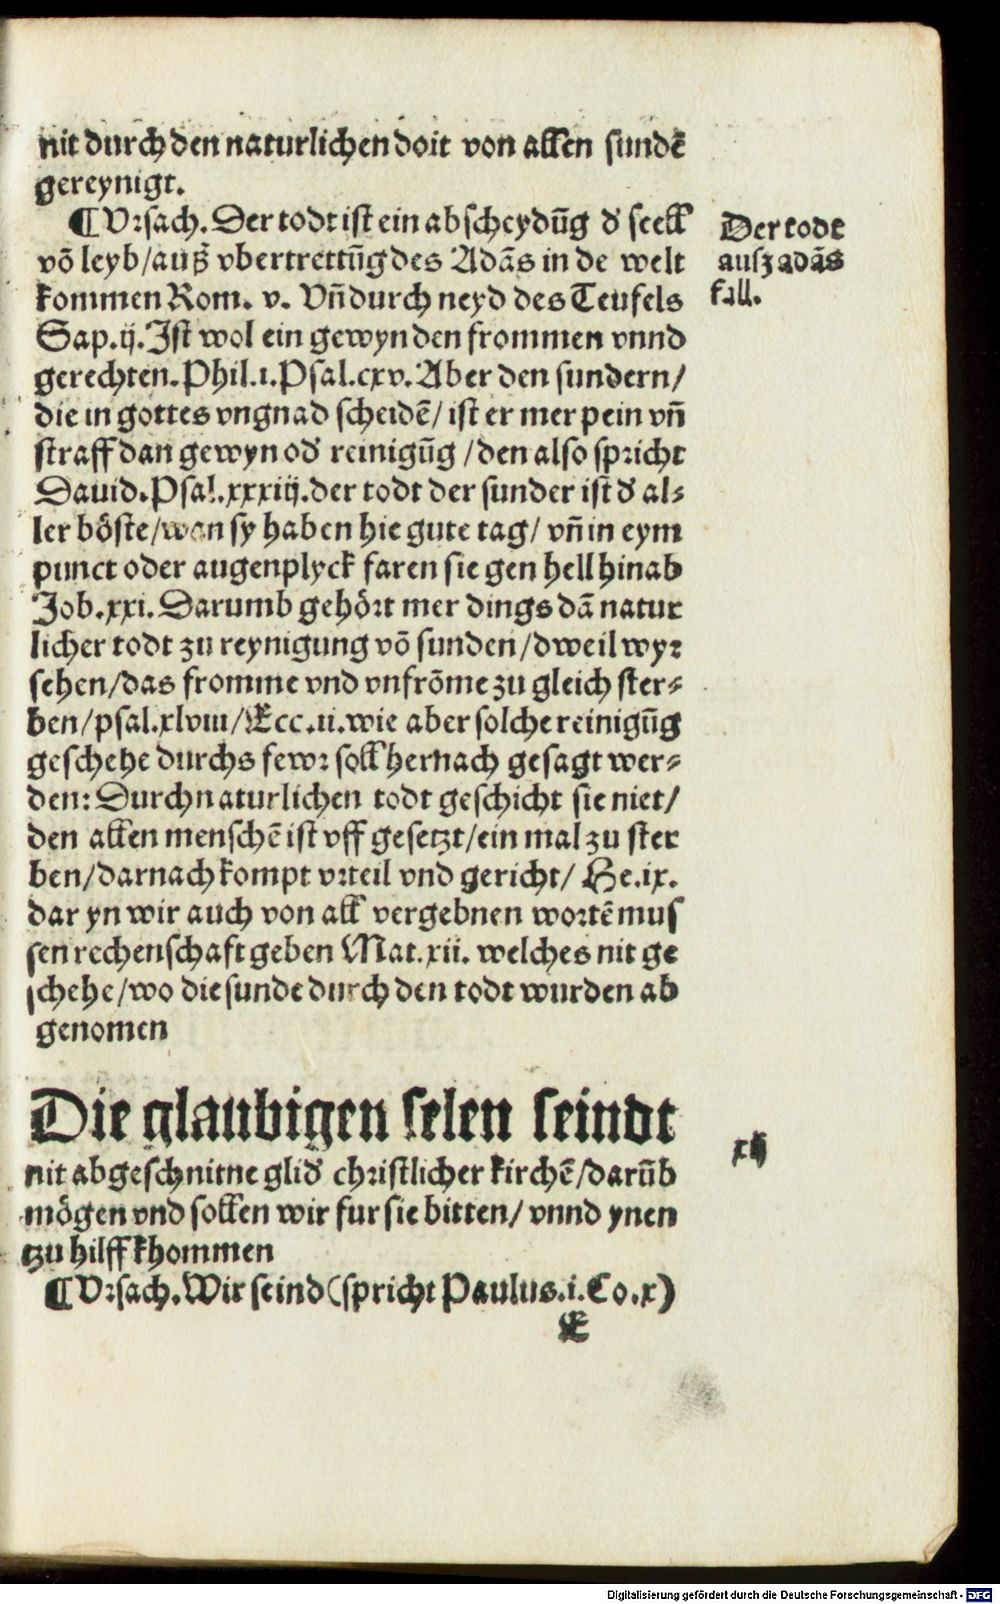 nit durch den naturlichen doit von allen sundẽ
gereynigt.
¶ Vrsach. Der todt ist ein abscheydũg d' seell
võ leyb/auß vbertrettũg des Adãs in de welt
kommen Rom. v. Vñ durch neyd des Teufels
Sap.ij. Ist wol ein gewyn den frommen vnnd
gerechten. Phil.i. Psal.cxv. Aber den sundern/
die in gottes vngnad scheidẽ/ ist er mer pein vñ
straff dan gewyn od' reinigũg /den also spricht
Dauid. Psal.xxxiij. der todt der sunder ist d' al⸗
ler böste/wan sy haben hie gute tag/ vñ in eym
punct oder augenplyck faren sie gen hell hinab
Job.xxi. Darumb gehört mer dings dã natur
licher todt zu reynigung võ sunden/dweil wyr
sehen/das fromme vnd vnfrõme zu gleich ster⸗
ben/psal.xlviii/Ecc.ii. wie aber solche reinigũg
geschehe durchs fewr soll hernach gesagt wer⸗
den: Durch naturlichen todt geschicht sie niet/
den allen menschẽ ist vff gesetzt/ein mal zu ster
ben/darnach kompt vrteil vnd gericht/ He.ix.
dar yn wir auch von all vergebnen wortẽ mus
sen rechenschaft geben Mat.xii. welches nit ge
schehe/wo die sunde durch den todt wurden ab
genomen
Der todt
ausz adãs
fall.
Die glaubigen selen seindt
nit abgeschnitne glid' christlicher kirchẽ/darũb
mögen vnd sollen wir fur sie bitten/ vnnd ynen
tzu hilff khommen
xij
¶ Vrsach. Wir seind (spricht Paulus.i. Co.x)
E
Digitalisierung gefördert durch die Deutsche Forschungsgemeinschaft - DFG